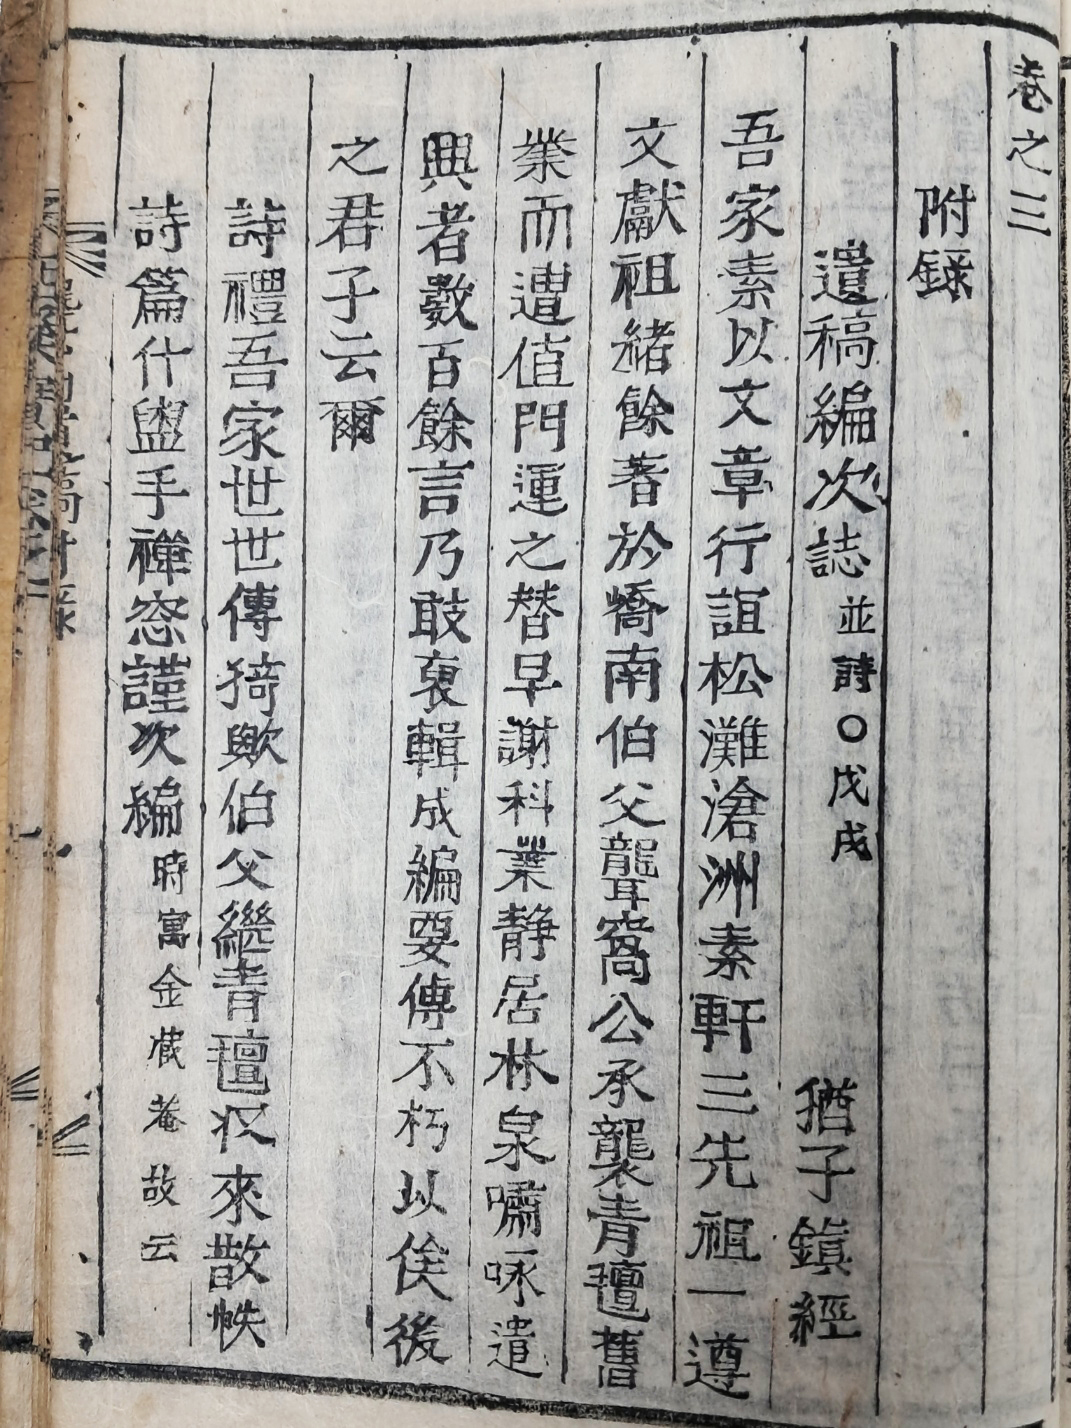 卷之三
附錄
遺稿編次誌 並詩○戊戌 猶子鎭經
吾家素以文章行誼松灘滄洲素軒三先祖一遵
文獻祖緒餘著於嶠南伯父聾窩公承襲青氊舊
業而遭值門運之替早謝科業靜居林泉嘯咏遣
興者數百餘言乃敢裒輯成編要傳不朽以俟後
之君子云爾
詩禮吾家世世傳猗歟伯父繼青氊収來散帙
詩篇什盥手禪窓謹次編 時寓金蔵菴故云